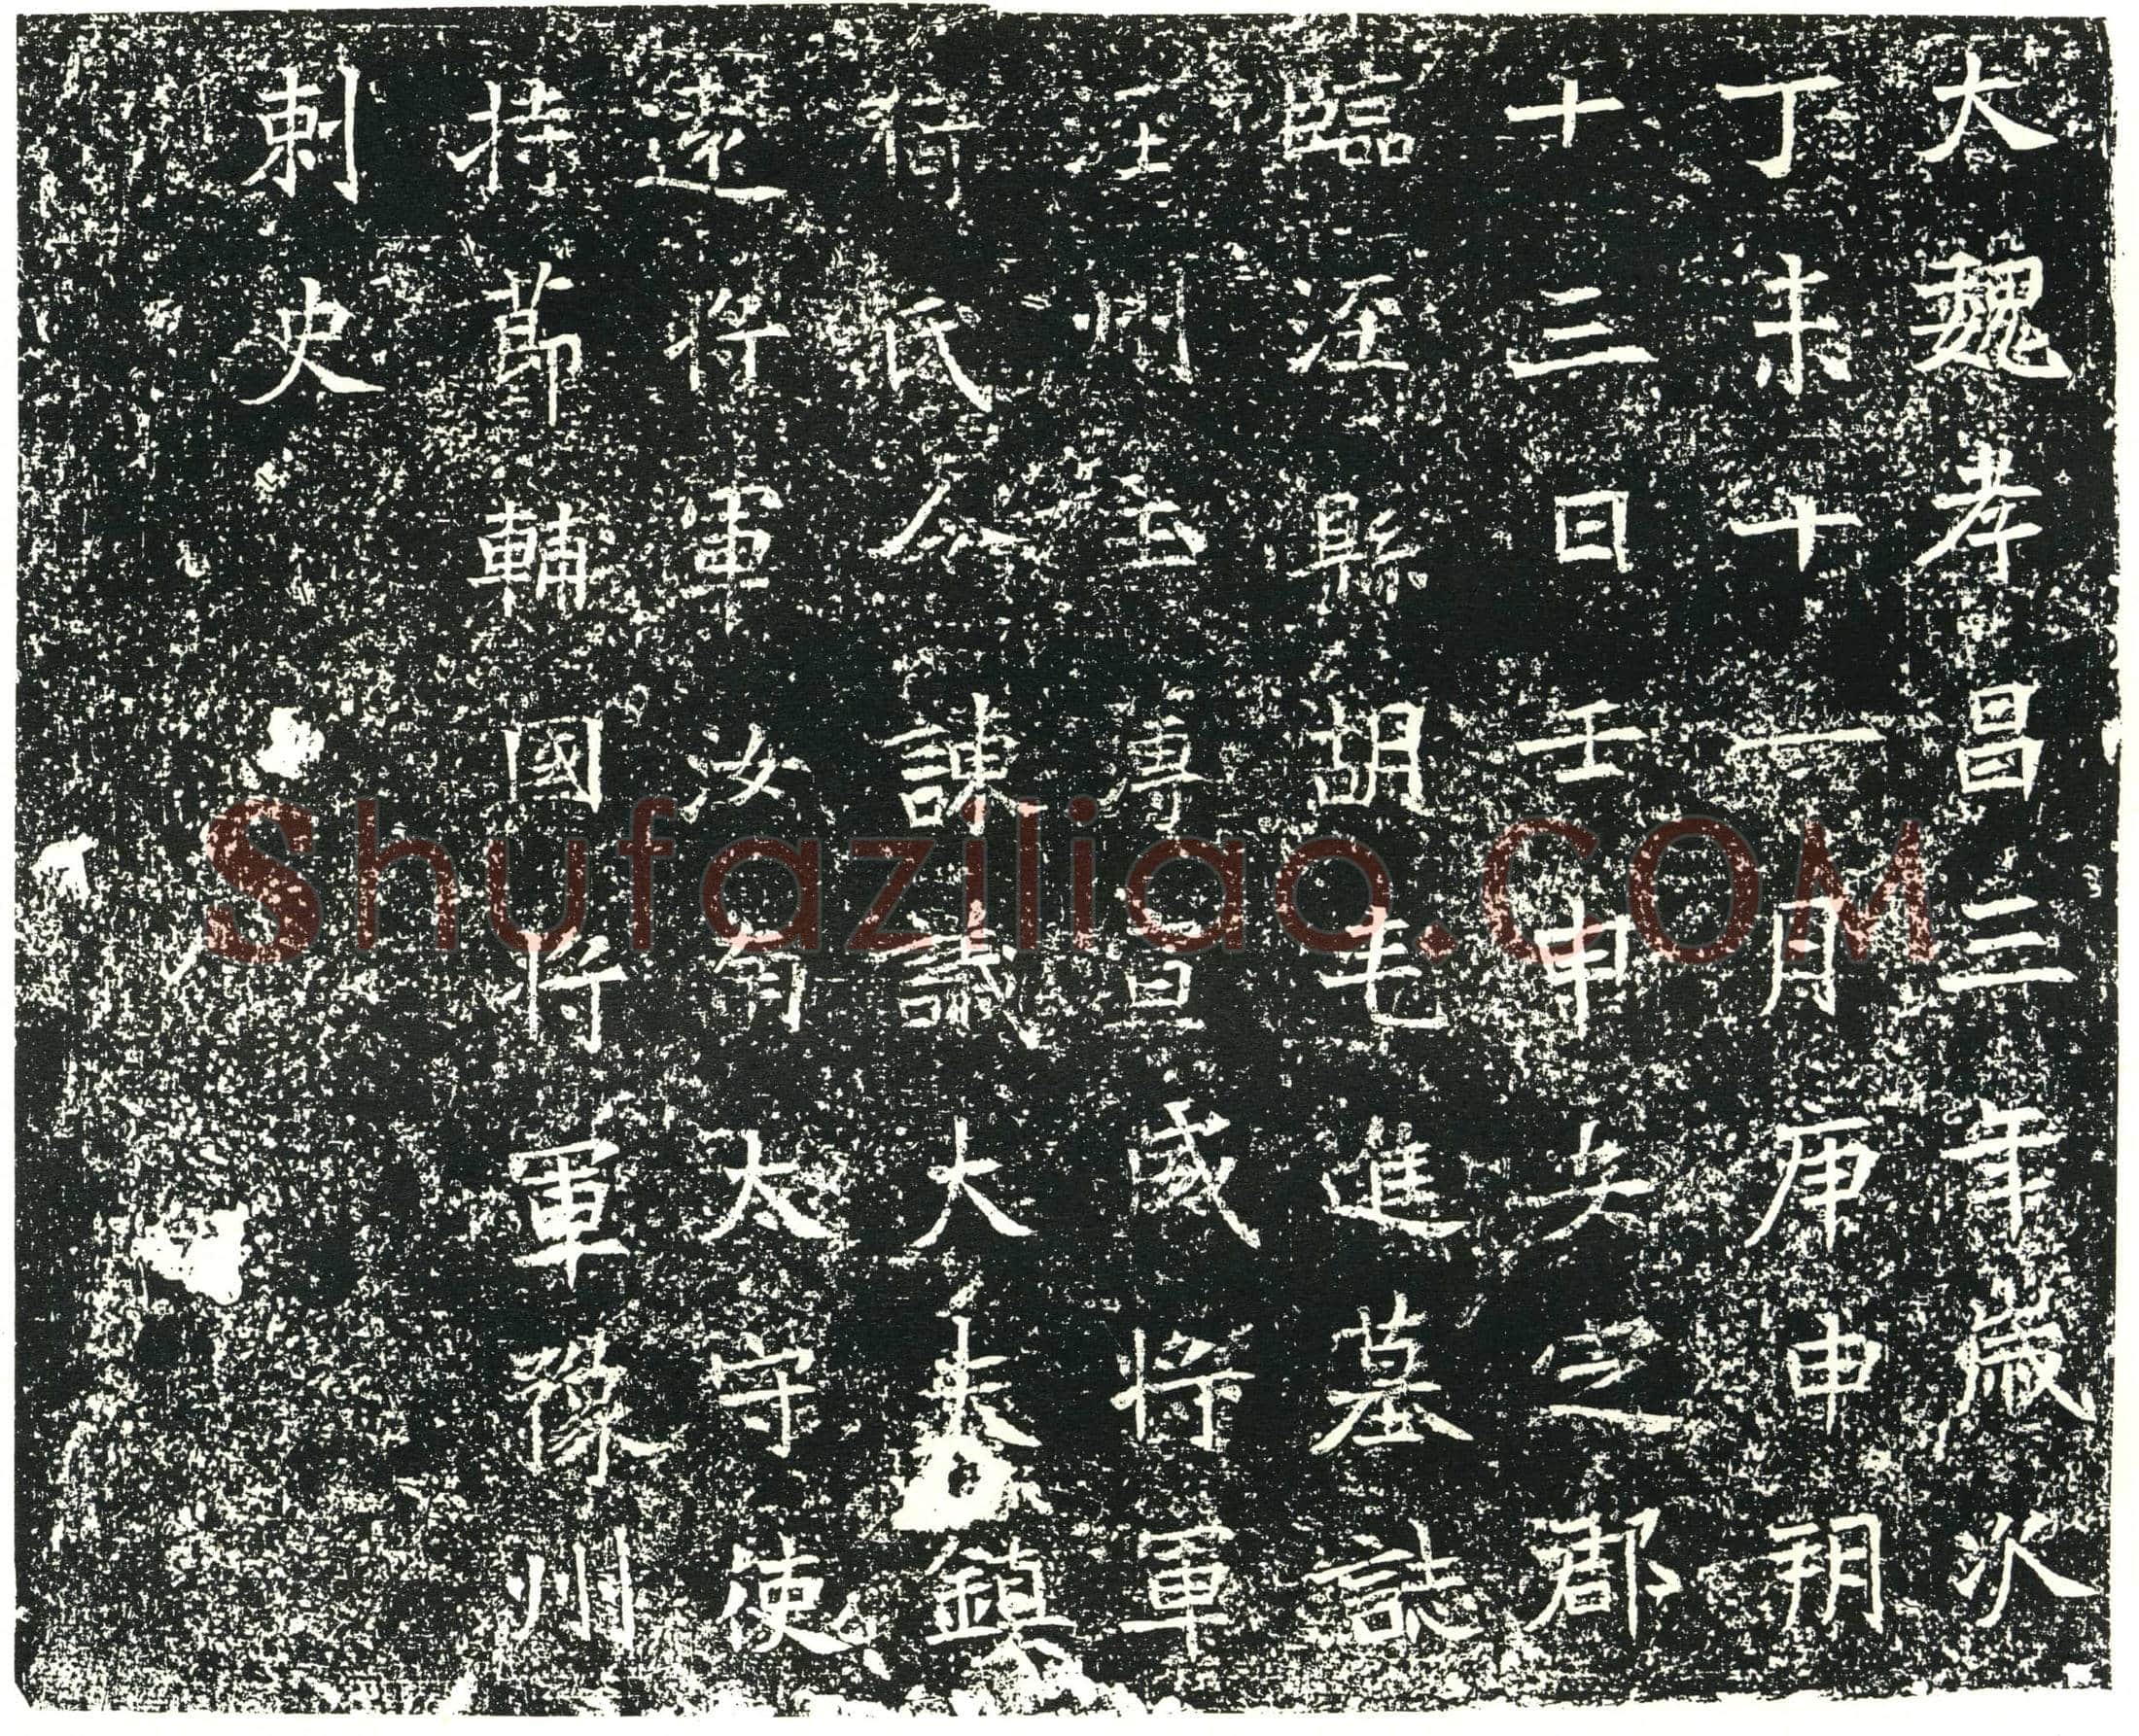 大魏孝昌三年歲次
丁未十一月庚申朔
十三日壬申安定郡
臨涇縣胡毛進墓誌
涇州主簿宣威將軍
氏令諫議大夫鎮
遠將軍汝南太守使
持節輔國將軍豫州
刺史
Shufaziliao.COM